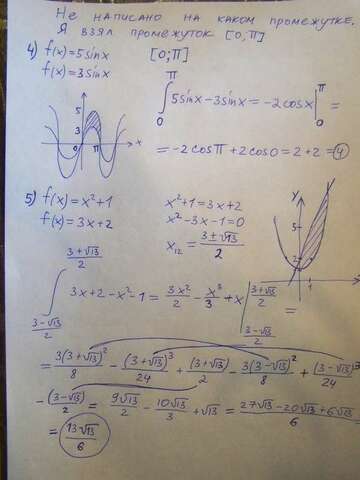 Не написано на каком промежутке.
Я взял промежуток [0, π]
4) f(x) = 5sinx [0; π]
f(x) = 3sinx
∫₀^π 5sinx - 3sinx = -2cosx |₀^π =
= -2cosπ + 2cos0 = 2 + 2 = 4
5
3
π x
5) f(x) = x² + 1 x² + 1 = 3x + 2
f(x) = 3x + 2 x² - 3x - 1 = 0
x₁₂ = (3 ± √13)/2
y
5
2
1
∫_{(3-√13)/2}^{(3+√13)/2} 3x + 2 - x² - 1 = 3x²/2 - x³/3 + x |_{(3-√13)/2}^{(3+√13)/2} =
= 3(3+√13)²/8 - (3+√13)³/24 + (3+√13)/2 - 3(3-√13)²/8 + (3-√13)³/24
- (3-√13)/2 = 9√13/2 - 10√13/3 + √13 = (27√13 - 20√13 + 6√13)/6
= 13√13/6